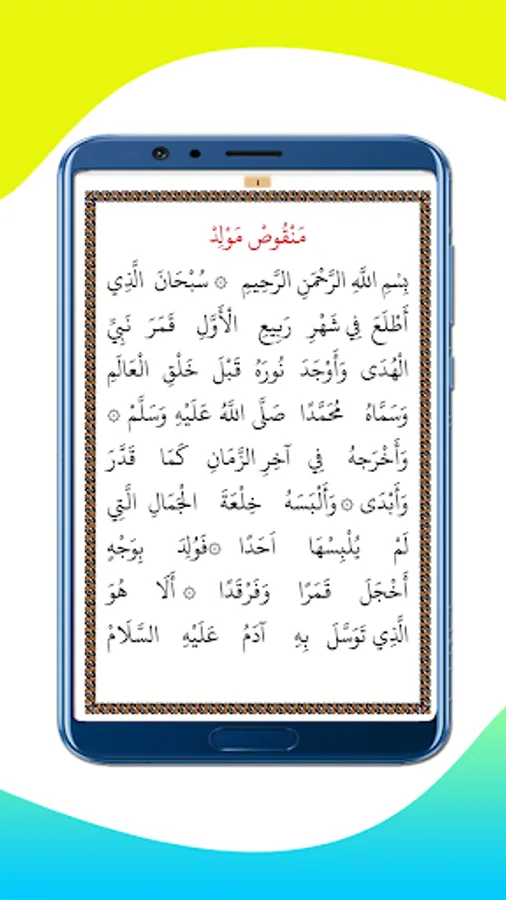 ١
مَنْقُوصْ مَوْلِدْ
بِسْمِ اللَّهِ الرَّحْمَنِ الرَّحِيمِ ۞ سُبْحَانَ الَّذِي
أَطْلَعَ فِي شَهْرِ رَبِيعِ الْأَوَّلِ قَمَرَ نَبِيِّ
الْهُدَى وَأَوْجَدَ نُورَهُ قَبْلَ خَلْقِ الْعَالَمِ
وَسَمَّاهُ مُحَمَّدًا صَلَّى اللَّهُ عَلَيْهِ وَسَلَّمْ ۞
وَأَخْرَجهُ فِي آخِرِ الزَّمَانِ كَمَا قَدَّرَ
وَأَبْدَى ۞ وَأَلْبَسَهُ خِلْعَةَ الْجَمَالِ الَّتِي
لَمْ يُلْبِسْهَا اَحَدًا ۞ فَوُلِدَ بِوَجْهٍ
أَخْجَلَ قَمَرًا وَفَرْقَدًا ۞ أَلَا هُوَ
الَّذِي تَوَسَّلَ بِهِ آدَمُ عَلَيْهِ السَّلَامْ